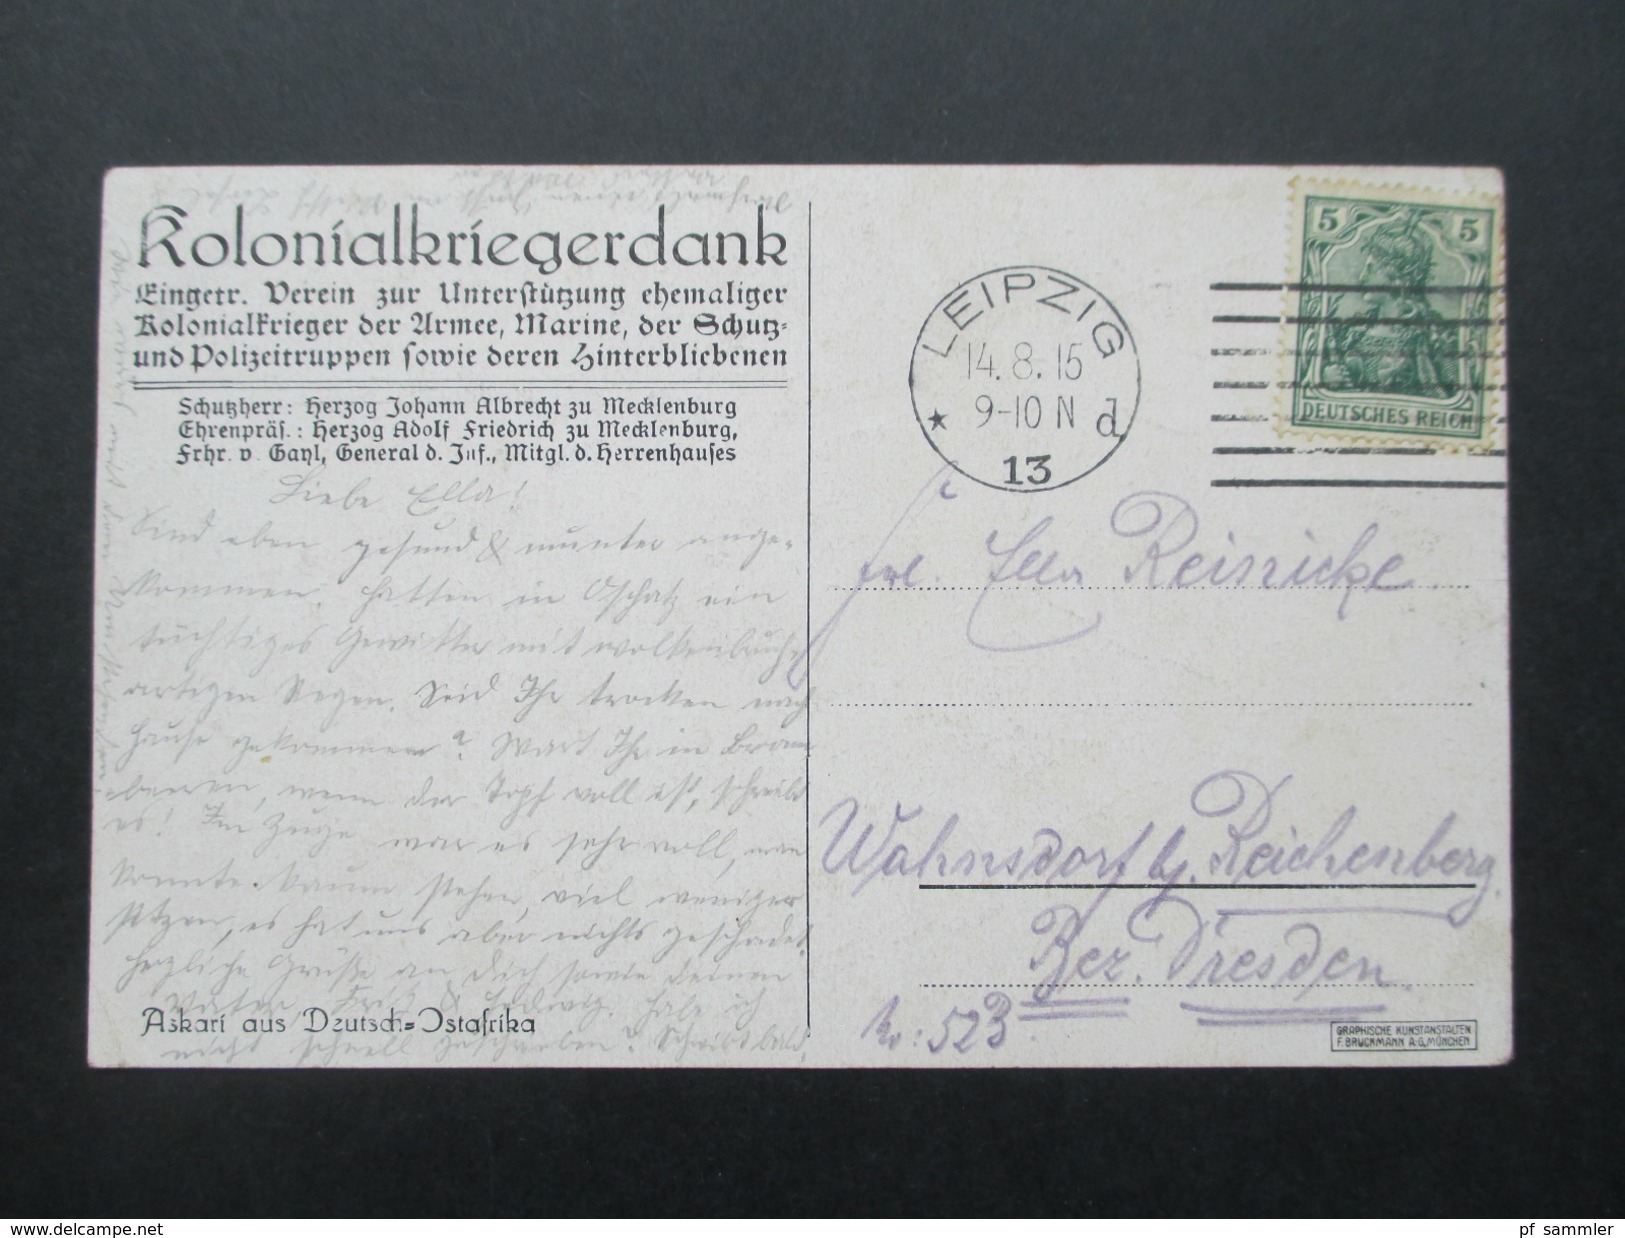 Kolonialkriegerdank
Eingetr. Verein zur Unterstützung ehemaliger
Kolonialkrieger der Armee, Marine, der Schutz-
und Polizeitruppen sowie deren Hinterbliebenen
Schutzherr: Herzog Johann Albrecht zu Mecklenburg
Ehrenpräs.: Herzog Adolf Friedrich zu Mecklenburg,
Frhr. v. Gayl, General d. Inf., Mitgl. d. Herrenhauses
Liebe Ella!
Sind eben gesund & munter ange-
kommen, hatten in Oschatz ein
tüchtiges Gewitter mit wolkenbruch-
artigen Regen. Seid Ihr trocken nach
Hause gekommen? Wart Ihr in Brom
beeren, wenn der Topf voll ist, schreibt
es! Im Zuge war es sehr voll, man
konnte kaum stehen, viel weniger
sitzen, es hat uns aber nichts geschadet.
Herzliche Grüße an Dich sowie deinen
Vater, Fritz & Ludwig. Habe ich
nicht schnell geschrieben? Schreibt bald,
Askari aus Deutsch-Ostafrika
LEIPZIG
14.8.15
9-10 N
* d
13
5 5
DEUTSCHES REICH
Frl. Ella Reinicke
Wahnsdorf b. Reichenberg.
Bez. Dresden.
No: 52B
GRAPHISCHE KUNSTANSTALTEN
F. BRUCKMANN A.G. MÜNCHEN
delcampe.net
pf_sammler